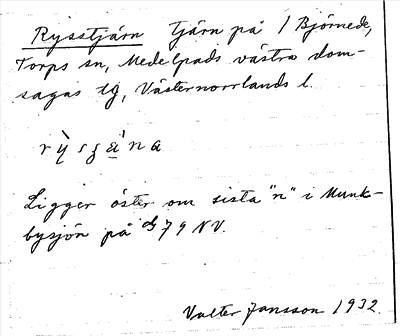 Rysstjärn Tjärn på / Björnede,
Torps sn, Medelpads västra dom-
sagas tg, Västernorrlands l.
Ligger öster om sista "n" i Munk-
bysjön på 79 NV.
Valter Jansson 1932.